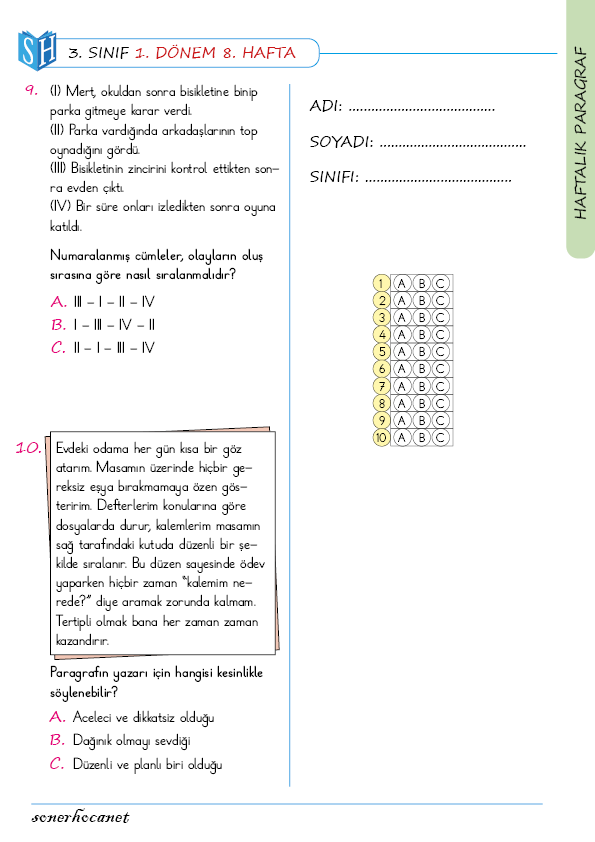 SH
3. SINIF 1. DÖNEM 8. HAFTA
HAFTALIK PARAGRAF
9. (I) Mert, okuldan sonra bisikletine binip
parka gitmeye karar verdi.
(II) Parka vardığında arkadaşlarının top
oynadığını gördü.
(III) Bisikletinin zincirini kontrol ettikten son-
ra evden çıktı.
(IV) Bir süre onları izledikten sonra oyuna
katıldı.
Numaralanmış cümleler, olayların oluş
sırasına göre nasıl sıralanmalıdır?
A. III - I - II - IV
B. I - III - IV - II
C. II - I - III - IV
10. Evdeki odama her gün kısa bir göz
atarım. Masamın üzerinde hiçbir ge-
reksiz eşya bırakmamaya özen gös-
teririm. Defterlerim konularına göre
dosyalarda durur, kalemlerim masamın
sağ tarafındaki kutuda düzenli bir şe-
kilde sıralanır. Bu düzen sayesinde ödev
yaparken hiçbir zaman "kalemim ne-
rede?" diye aramak zorunda kalmam.
Tertipli olmak bana her zaman zaman
kazandırır.
Paragrafın yazarı için hangisi kesinlikle
söylenebilir?
A. Aceleci ve dikkatsiz olduğu
B. Dağınık olmayı sevdiği
C. Düzenli ve planlı biri olduğu
ADI: .......................................
SOYADI: .......................................
SINIFI: .......................................
1 A B C
2 A B C
3 A B C
4 A B C
5 A B C
6 A B C
7 A B C
8 A B C
9 A B C
10 A B C
sonerhocanet